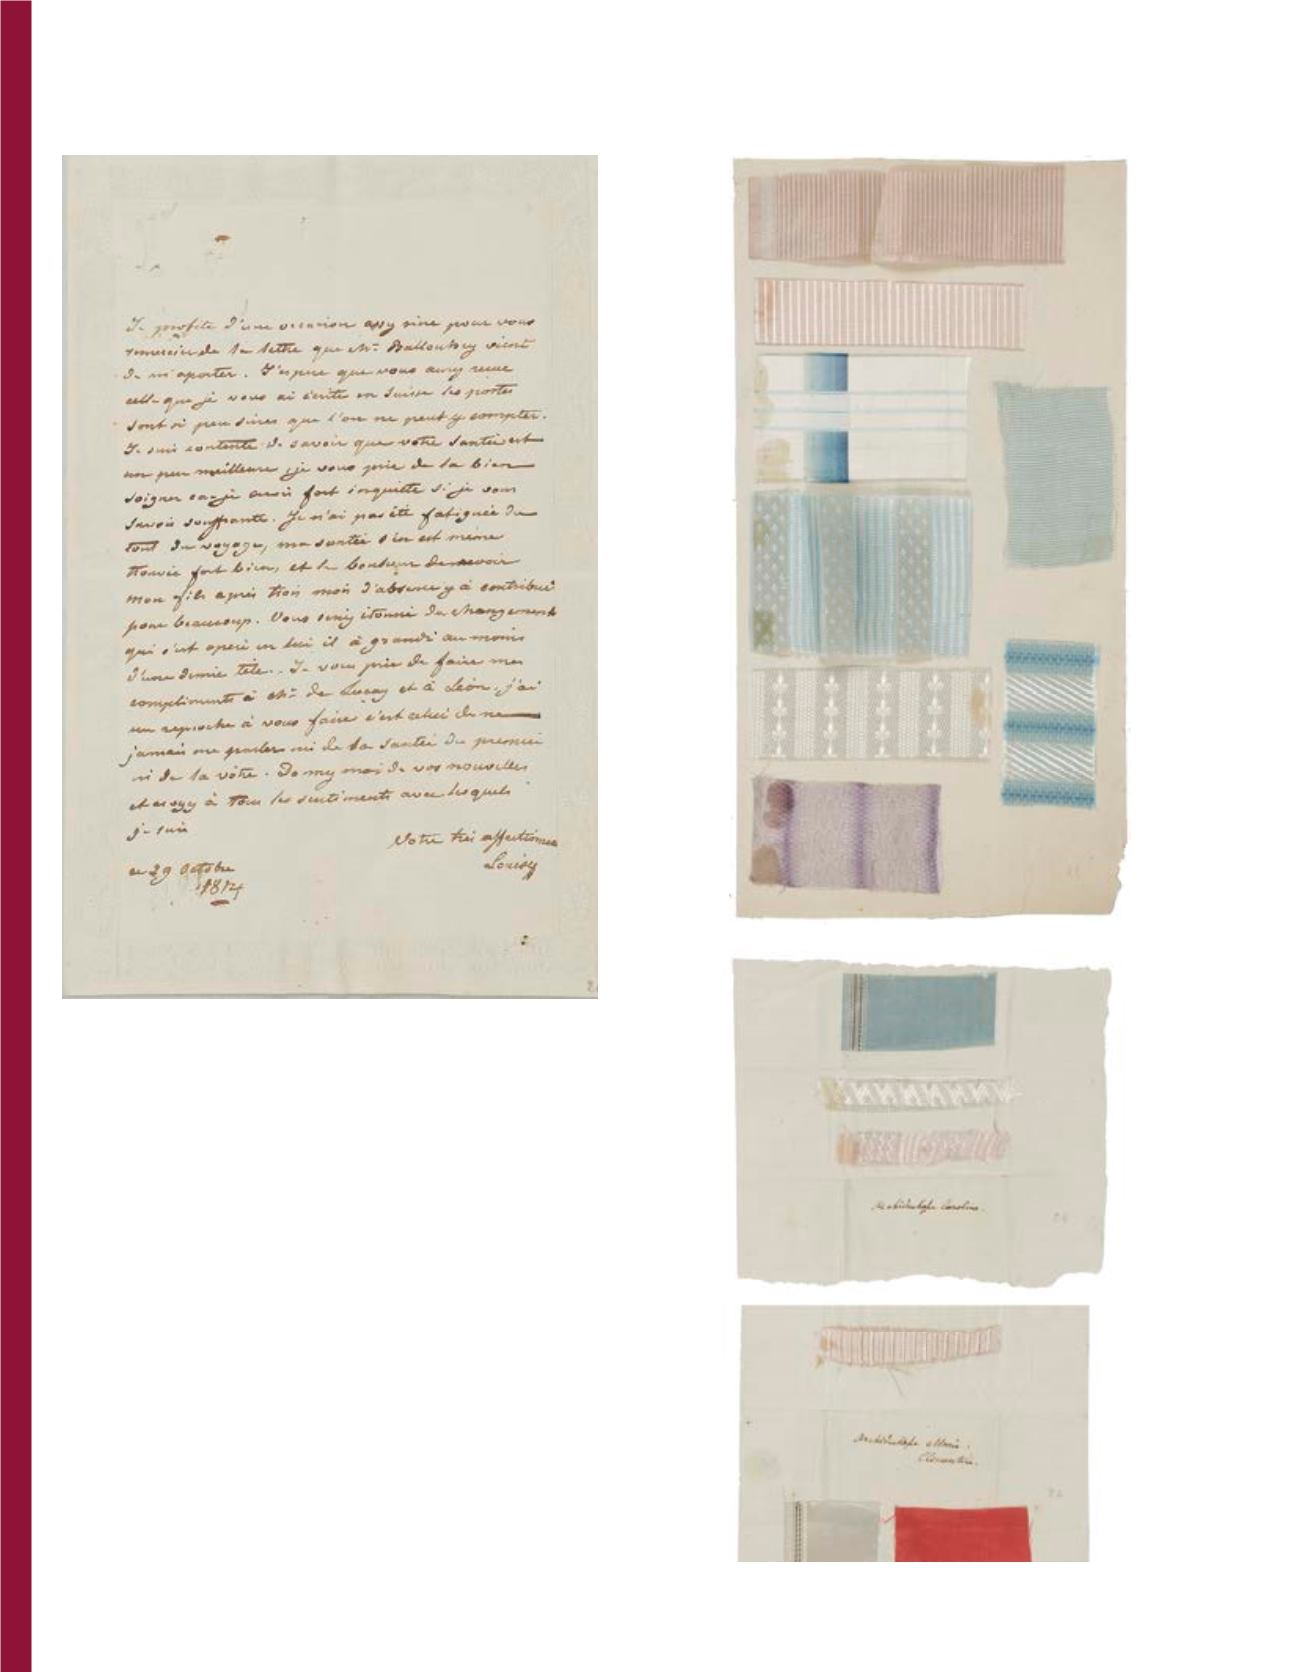 Je profite d'une occasion assy sure pour vous
remercier de la lettre que Mr Ballouhey vient
de m'aporter. J'espere que vous aurez recue
celle que je vous ai écrite en Suisse les postes
sont si peu sures que l'on ne peut y compter.
Je suis contente de savoir que votre santée est
un peu meilleure, je vous prie de la bien
soigner car je serois fort inquiette si je vous
savois souffrante. Je n'ai pas été fatiguée du
tout du voyage, ma santée s'en est même
trouvée fort bien, et le bonheur de revoir
mon fils après trois mois d'absence y à contribué
pour beaucoup. Vous seriez étonné du changement
qui s'est opéré en lui il à grandi au moins
d'une demie tête. Je vous prie de faire mes
compliments à Mr de Luçay et à Léon, j'ai
un reproche à vous faire c'est celui de ne
jamais me parler ni de la santée du premier
ni de la vôtre. Donnez moi de vos nouvelles
et croyez à tous les sentiments avec lesquels
je suis
Votre très affectionnée
Louise
ce 29 Octobre
1814
2
Archiduchesse Caroline.
24
Archiduchesse Marie.
Clementine.